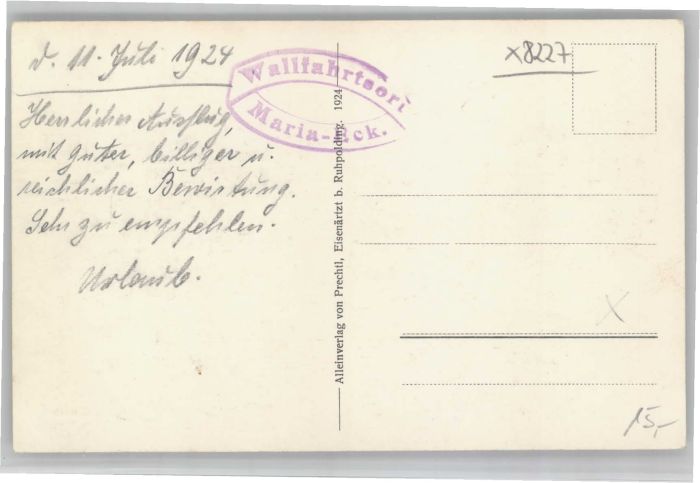 d. 11. Juli 1924
Herrlicher Ausflug,
mit guter, billiger u.
reichlicher Bewirtung.
Sehr zu empfehlen.
Urlaub.
Wallfahrtsort
Maria-Eck.
Alleinverlag von Prechtl, Eisenärtzt b. Ruhpolding. 1924
x8227
X
15,-